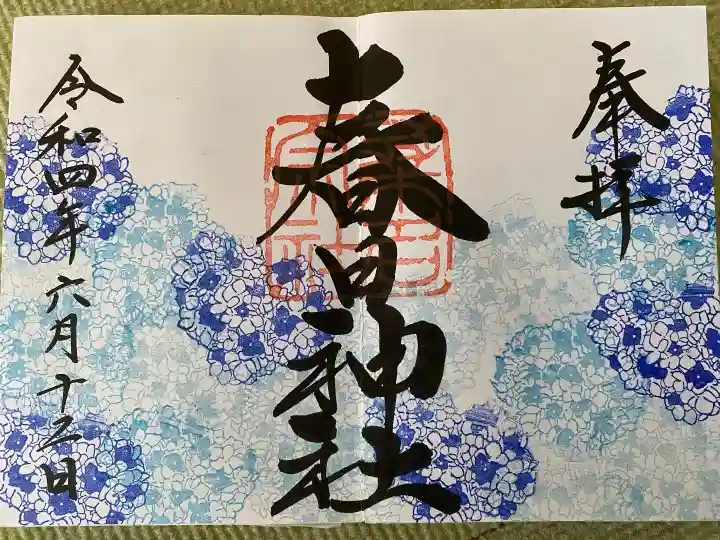 奉拝
春日神社
令和四年六月十二日